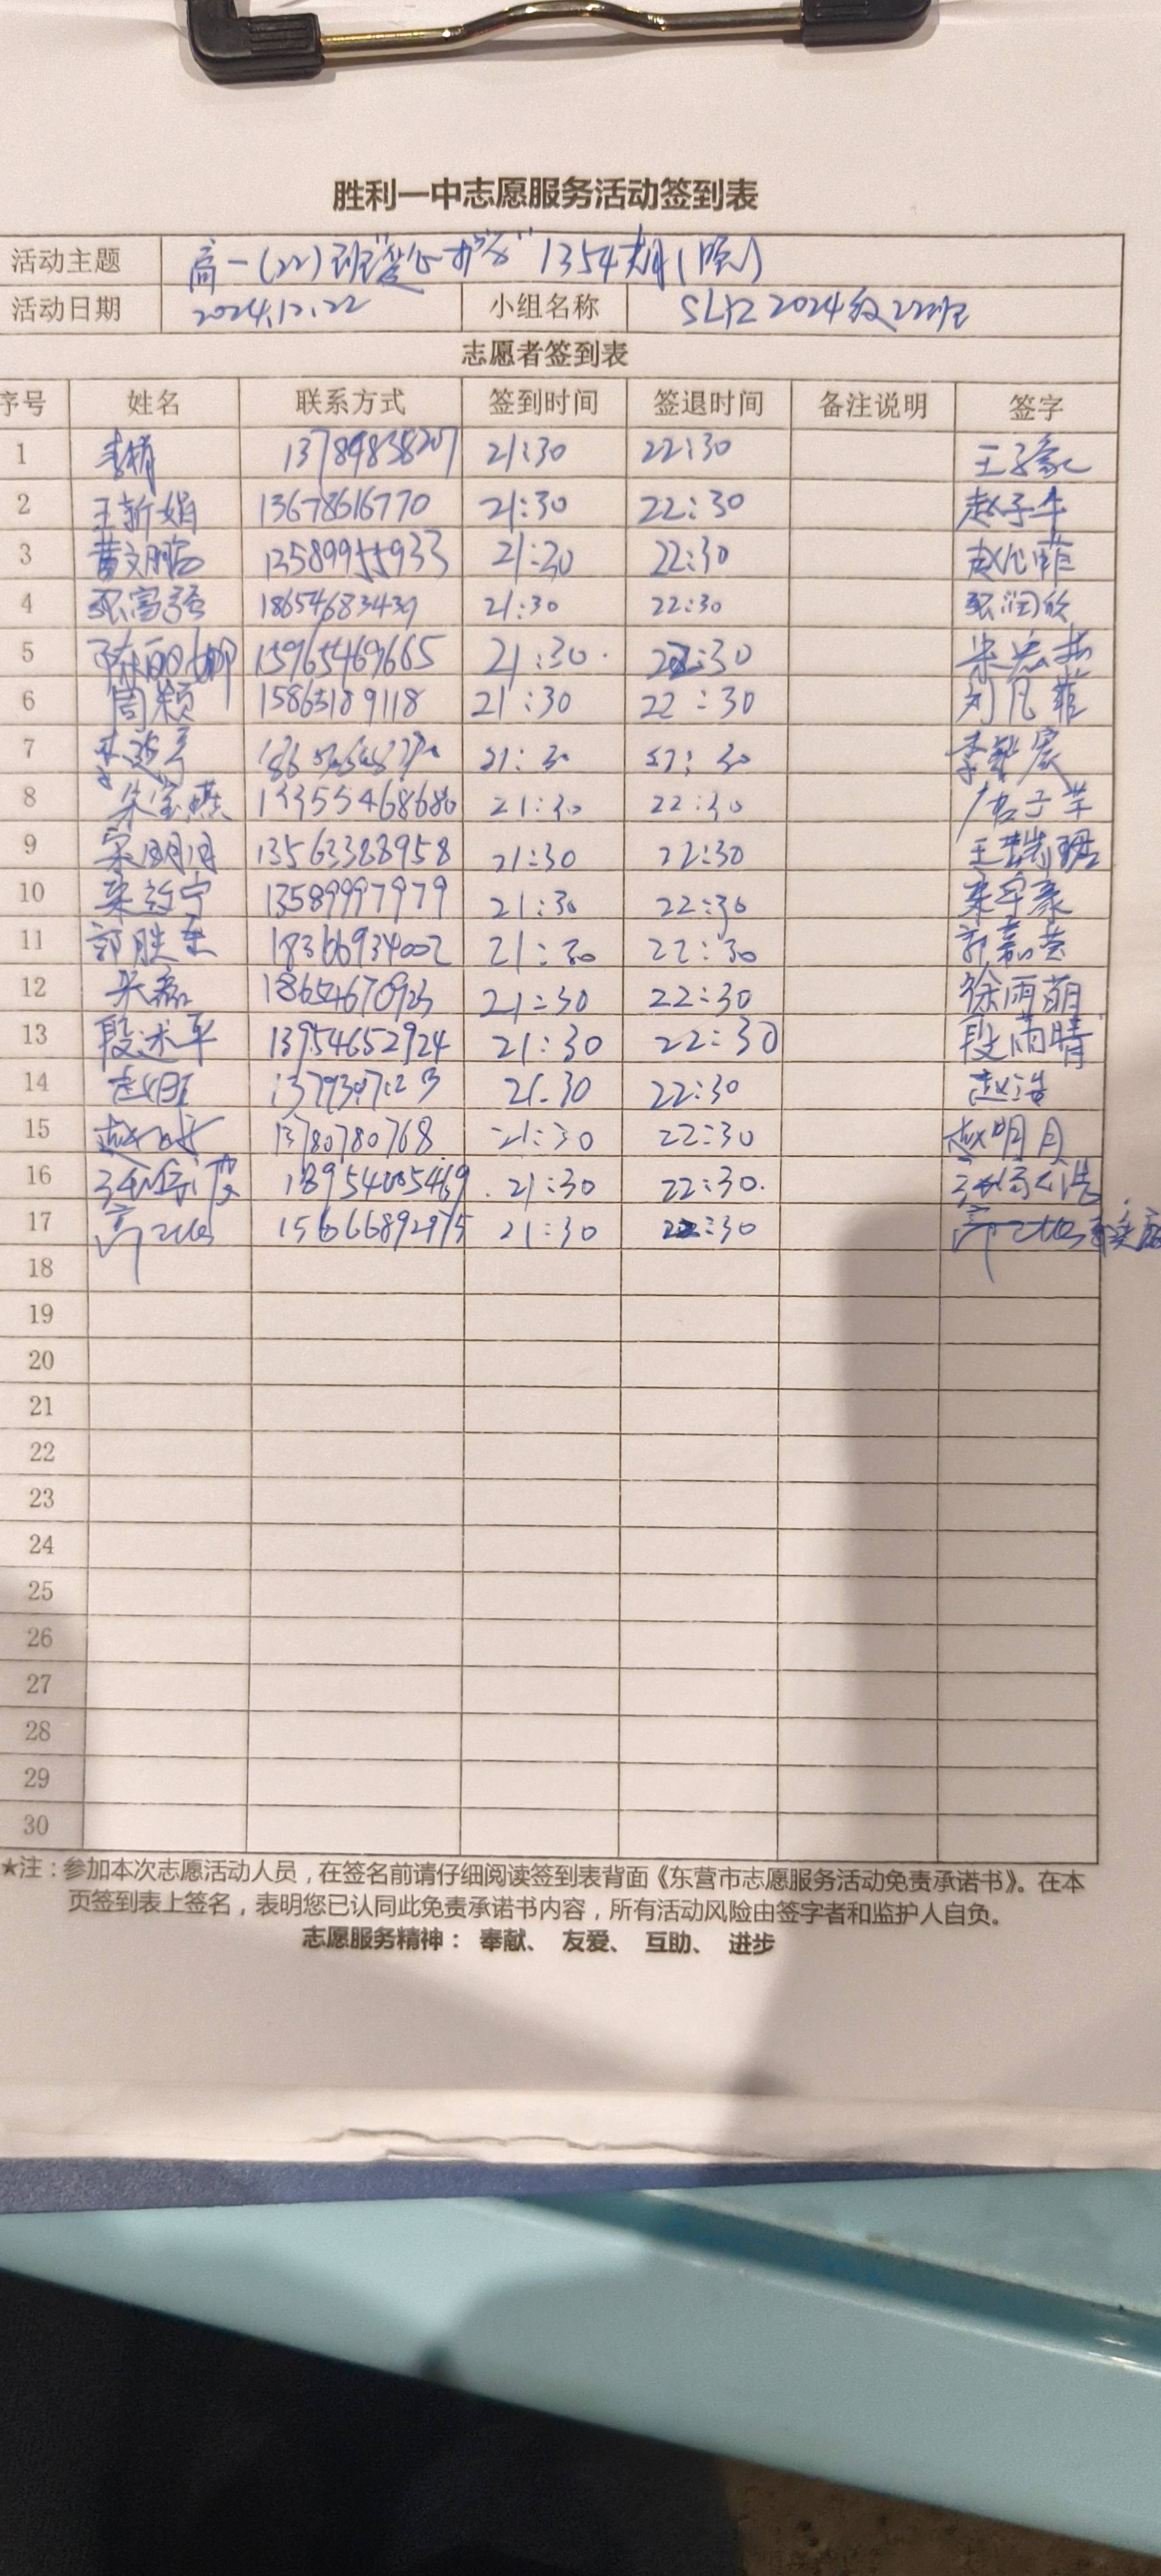 胜利一中志愿服务活动签到表
活动主题 高一(22)班"爱心护学"1354期(晚)
活动日期 2024.12.22 小组名称 SLYZ 2024级22班
志愿者签到表
序号 姓名 联系方式 签到时间 签退时间 备注说明 签字
1 李楠 13789838207 21:30 22:30 王子豪
2 王新娟 13678616770 21:30 22:30 赵子牛
3 黄文鹏 13589955933 21:30 22:30
4 张富强 18654683439 21:30 22:30 张润欣
5 陈丽娜 15965469665 21:30 22:30 宋
6 周颖 15865189118 21:30 22:30 刘凡菲
7 21:30 22:30 李 宸
8 朱宝 13355468686 21:30 22:30 唐子芊
9 宋明月 13563388958 21:30 22:30 王 琚
10 宋 宁 13589997979 21:30 22:30 宋宇豪
11 郭胜 18366934002 21:30 22:30 郭嘉
12 米磊 18654670923 21:30 22:30 徐雨萌
13 段述平 13954652924 21:30 22:30 段雨晴
14 赵 21:30 22:30 赵浩
15 赵 13780780768 21:30 22:30 赵明月
16 21:30 22:30
17 高 15666892975 21:30 22:30 高
18
19
20
21
22
23
24
25
26
27
28
29
30
★注：参加本次志愿活动人员，在签名前请仔细阅读签到表背面《东营市志愿服务活动免责承诺书》。在本
页签到表上签名，表明您已认同此免责承诺书内容，所有活动风险由签字者和监护人自负。
志愿服务精神： 奉献、 友爱、 互助、 进步